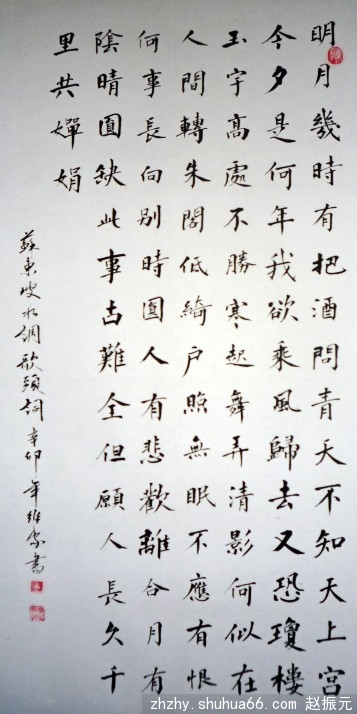 明月幾時有把酒問青天不知天上宮
今夕是何年我欲乘風歸去又恐瓊樓
玉宇高處不勝寒起舞弄清影何似在
人間轉朱閣低綺戶照無眠不應有恨
何事長向別時圓人有悲歡離合月有
陰晴圓缺此事古難全但願人長久千
里共嬋娟
蘇東坡水調歌頭詞辛卯年維家書
zhzhy.shuhua66.com 赵振元